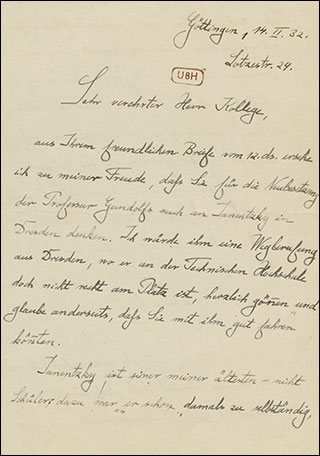 Göttingen, 14. II. 32.
Lotzestr. 24.
UBH
Sehr verehrter Herr Kollege,
aus Ihrem freundlichen Briefe vom 12. ds. ersehe
ich zu meiner Freude, daſs Sie für die Neubesetzung
der Professur Gundolfs auch an Janentzky in
Dresden denken. Ich würde ihm eine Wegberufung
aus Dresden, wo er an der Technischen Hochschule
doch nicht recht am Platz ist, herzlich gönnen und
glaube anderseits, daſs Sie mit ihm gut fahren
könnten.
Janentzky ist einer meiner ältesten – nicht
Schüler: dazu war er schon damals zu selbständig,